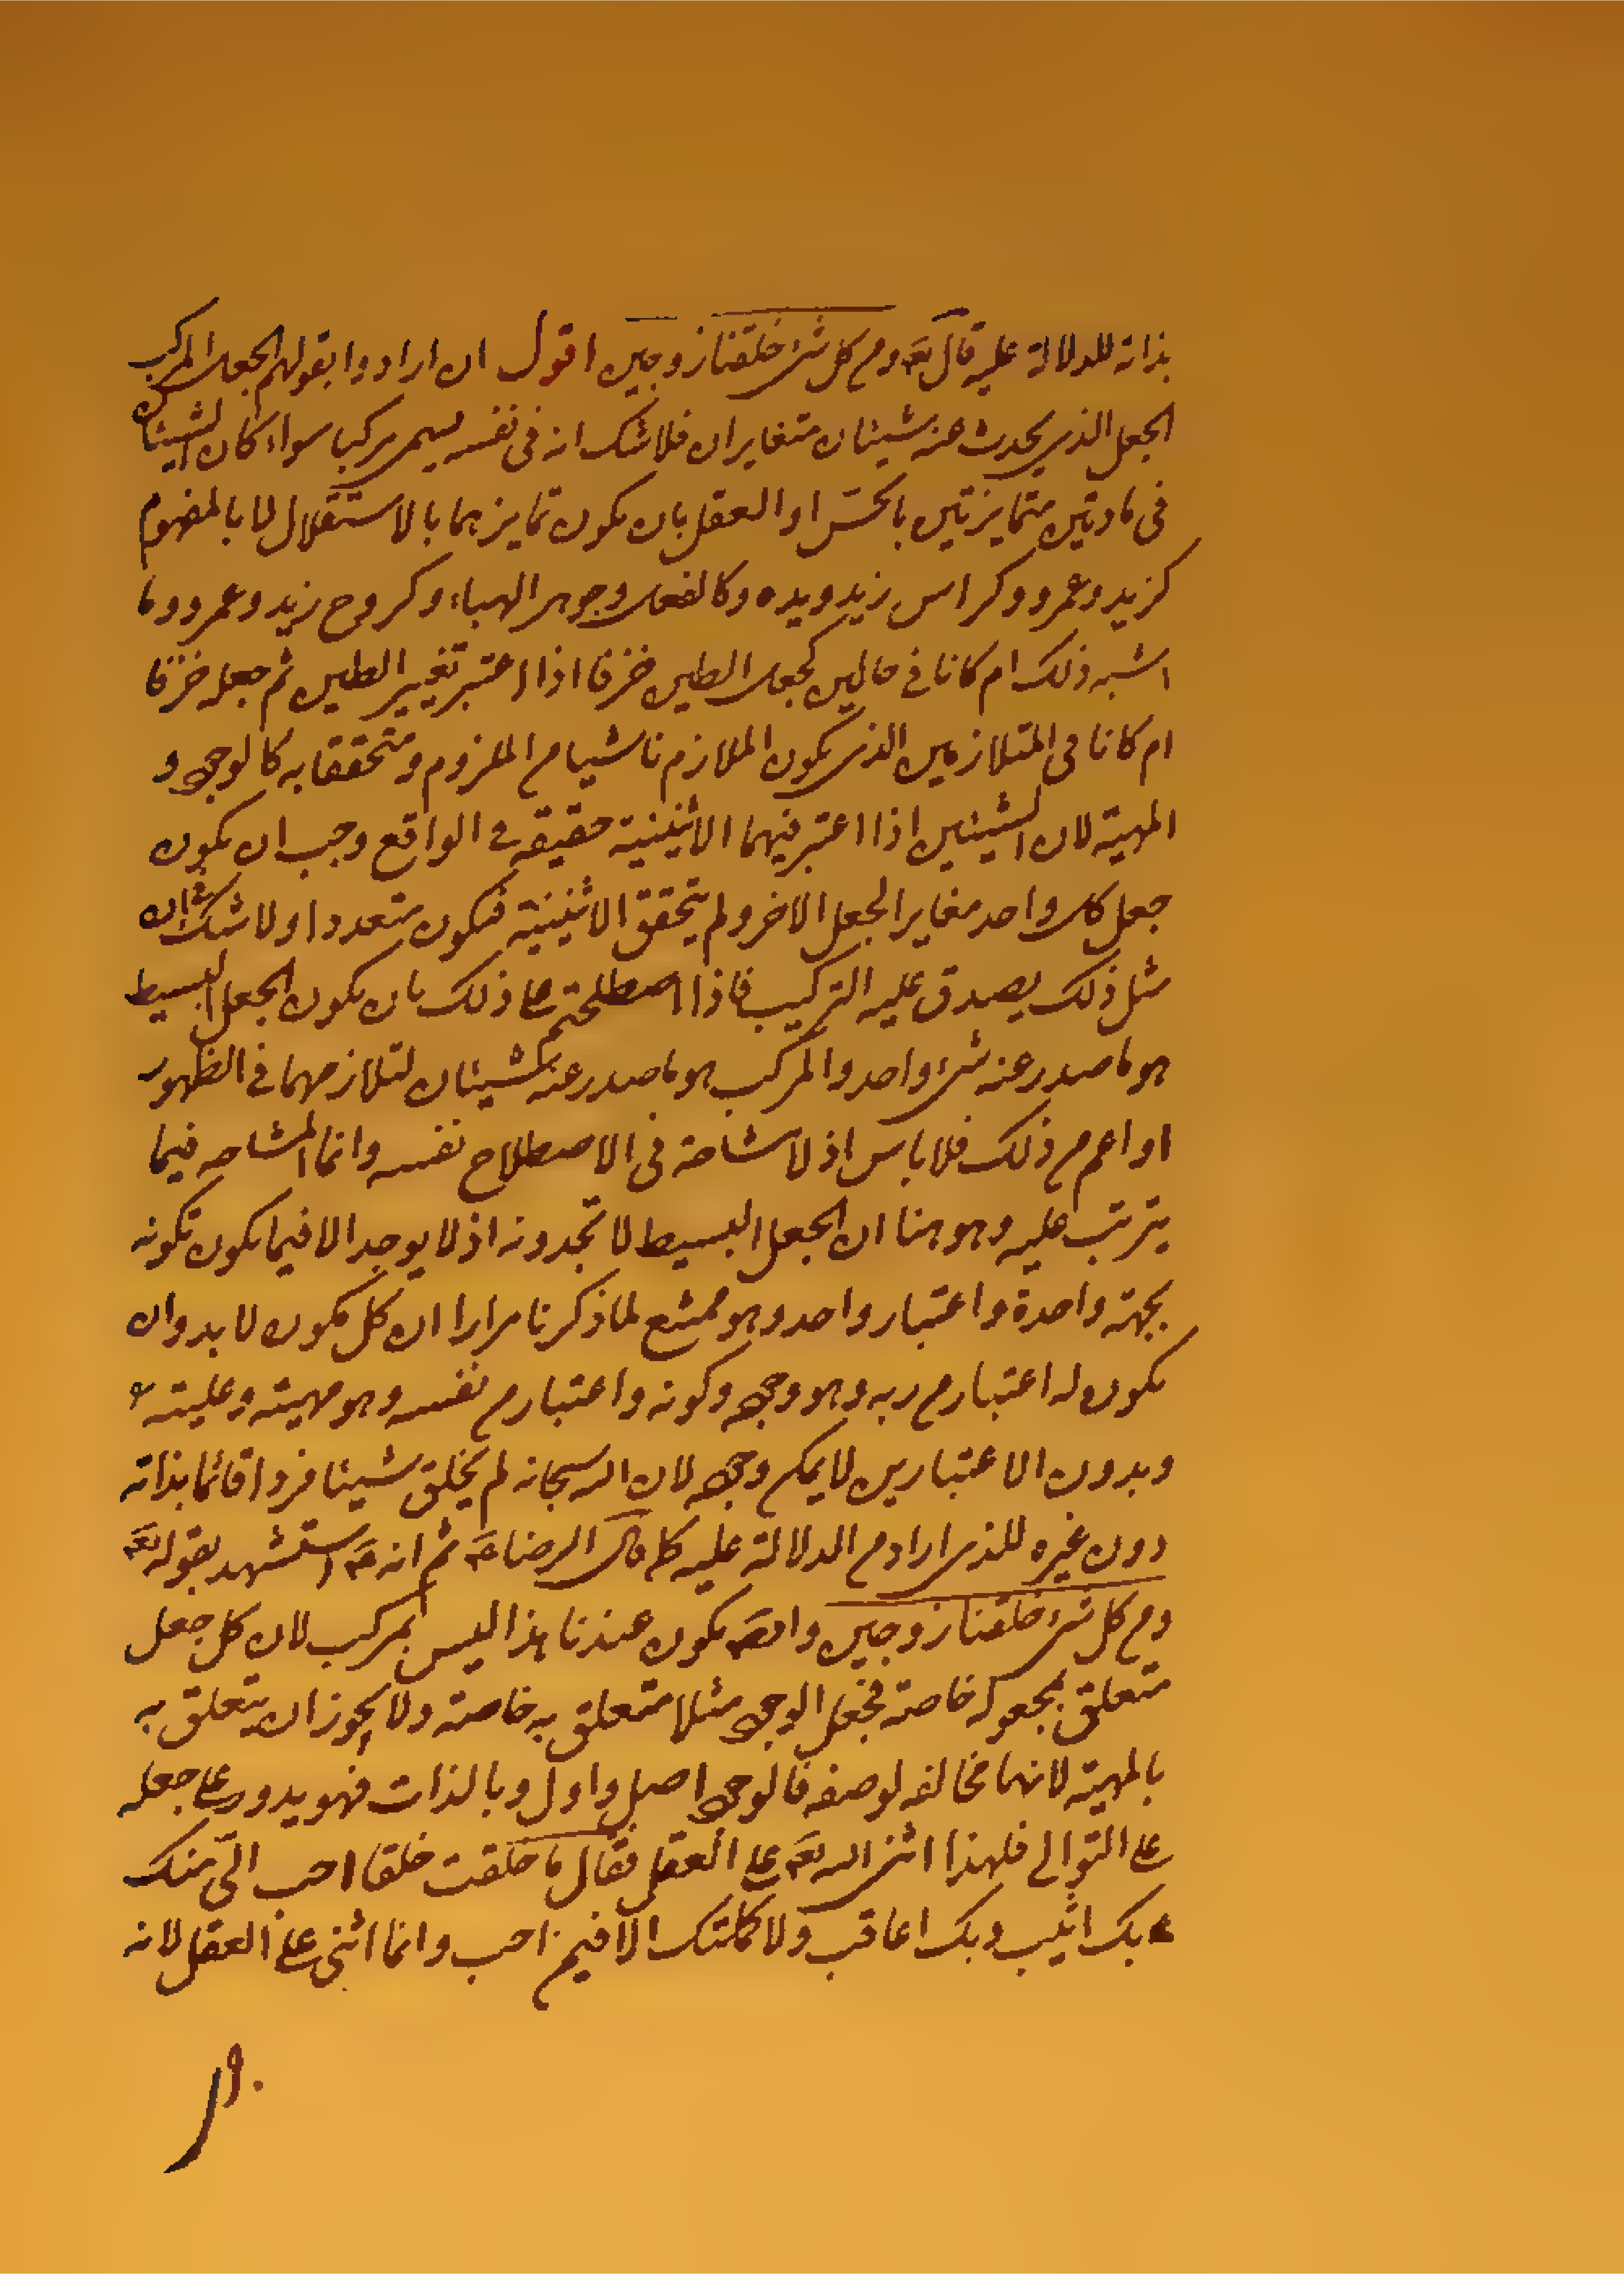 بذاته للدلالة عليه قال تع ومن كل شئ خلقنا زوجين اقول ان ارادوا بقولهم الجعل المركب
الجعل الذي يحدث عنه شيئان متغايران فلا شك انه في نفسه ليس مركب سواء كان الشيئان
في مادتين متمايزتين بالحس او العقل بان يكون تمايزهما بالاستقلال لا بالمفهوم
كزيد وعمرو وكراس زيد ويده وكالفعل وجوهر الهباء وكروح زيد وعمرو وما
اشبه ذلك ام كانا في حالين كجعل الطين خزفا اذا اعتبر تغيير الطين ثم جعله خزفا
ام كانا في المتلازمين الذي يكون الملازم ناشيا من الملزوم ومتحققا به كالوجود و
المهية لان الشيئين اذا اعتبر فيهما الاثنينية حقيقة في الواقع وجب ان يكون
جعل كل واحد مغاير الجعل الاخر ولم يتحقق الاثنينية فيكون متعددا ولا شك ان
مثل ذلك يصدق عليه التركيب فاذا اصطلحتم على ذلك بان يكون الجعل البسيط
هو ما صدر عنه شئ واحد والمركب هو ما صدر عنه شيئان لتلازمهما في الظهور
او اعم من ذلك فلا باس اذ لا مشاحة في الاصطلاح نفسه وانما المشاحه فيما
يترتب عليه وهو هنا ان الجعل البسيط لا تجدونه اذ لا يوجد الا فيما يكون تكونه
بجهة واحدة واعتبار واحد وهو ممتنع لما ذكرنا مرارا ان كل مكون لا بد وان
يكون له اعتبار من ربه وهو وجوده وكونه واعتبار من نفسه وهو مهيته وعليته
وبدون الاعتبارين لا يمكن وجوده لان الله سبحانه لم يخلق شيئا فردا قائما بذاته
دون غيره للذي اراد من الدلالة عليه كما قال الرضا ع ثم انه ع استشهد بقوله تع
ومن كل شئ خلقنا زوجين يكون عندنا هذا ليس بمركب لان كل جعل
متعلق بمجعوله خاصة فجعل الوجود مثلا متعلق به خاصة ولا يجوز ان يتعلق به
بالمهية لانها مخالفه لوصفه فالوجود اصل واول وبالذات فهو يدور على جعله
على التوالي فلهذا اثنى الله تع على العقل فقال ما خلقت خلقا احب الي منك
بك اثيب وبك اعاقب ولا كملتك الا فيمن احب وانما اثنى على العقل لانه